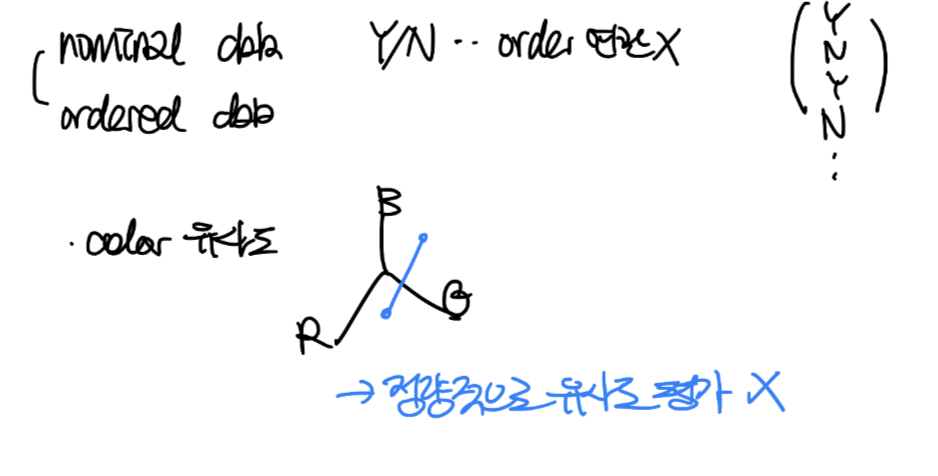 nominal data Y/N ·· order 연관X
ordered data
Y
N
Y
N
⋮
· color 유사도
B
R
G
→ 정량적으로 유사도 평가 X